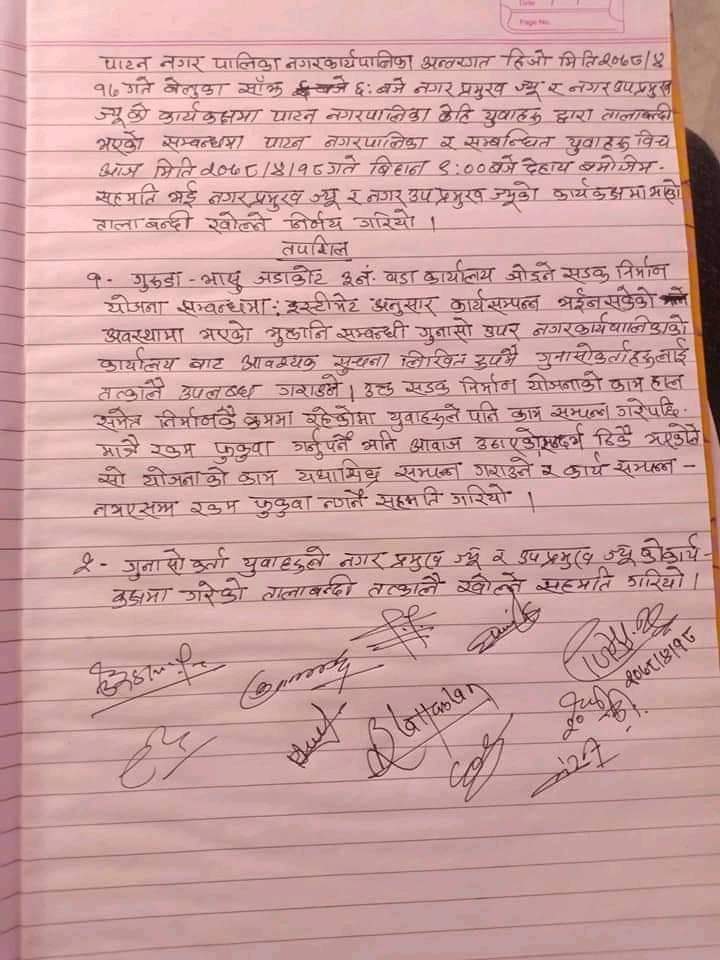 Date
Page No.
पाटन नगर पालिका नगरकार्यपालिका अन्तरगत हिजो मिति २०७८/४
१७ गते बेलुका साँझ ६: बजे नगर प्रमुख ज्यू र नगर उप प्रमुख
ज्यूको कार्यकक्षमा पाटन नगरपालिका केहि युवाहरु द्वारा तालाबन्दी
भएको सम्बन्धमा पाटन नगरपालिका र सम्बन्धित युवाहरु विच
आज मिति २०७८/४/१८ गते बिहान ९:०० बजे देहाय बमोजिम
सहमति भई नगर प्रमुख ज्यू र नगर उप प्रमुख ज्यूको कार्यकक्षमा भएको
तालाबन्दी खोल्ने निर्णय गरियो ।
तपशिल
१- गुरुडा - भापु जडाकोट ३नं. वडा कार्यालय जोड्ने सडक निर्माण
योजना सम्बन्धमा: इस्टीमेट अनुसार कार्यसम्पन्न भईनसकेको
अवस्थामा भएको भुक्तानि सम्बन्धी गुनासो उपर नगरकार्यपालिकाको
कार्यालय बाट आवश्यक सुचना लिखित रुपमै गुनासोकर्ताहरुलाई
तत्कालै उपलब्ध गराउने । उक्त सडक निर्माण योजनाको काम हाल
समेत निर्माणकै क्रममा रहेकोमा युवाहरुले पनि काम सम्पन्न गरेपछि
मात्रै रकम फुकुवा गर्नुपर्ने भनि आवाज उठाएको सन्दर्भ ठिकै भएकोले
सो योजनाको काम यथाशिघ्र सम्पन्न गराउने र कार्य सम्पन्न -
नभएसम्म रकम फुकुवा नगर्ने सहमति गरियो ।
२- गुनासो कर्ता युवाहरुले नगर प्रमुख ज्यू र उप प्रमुख ज्यूको कार्य -
कक्षमा गरेको तालाबन्दी तत्कालै खोल्ने सहमति गरियो ।
२०७८/४/१८